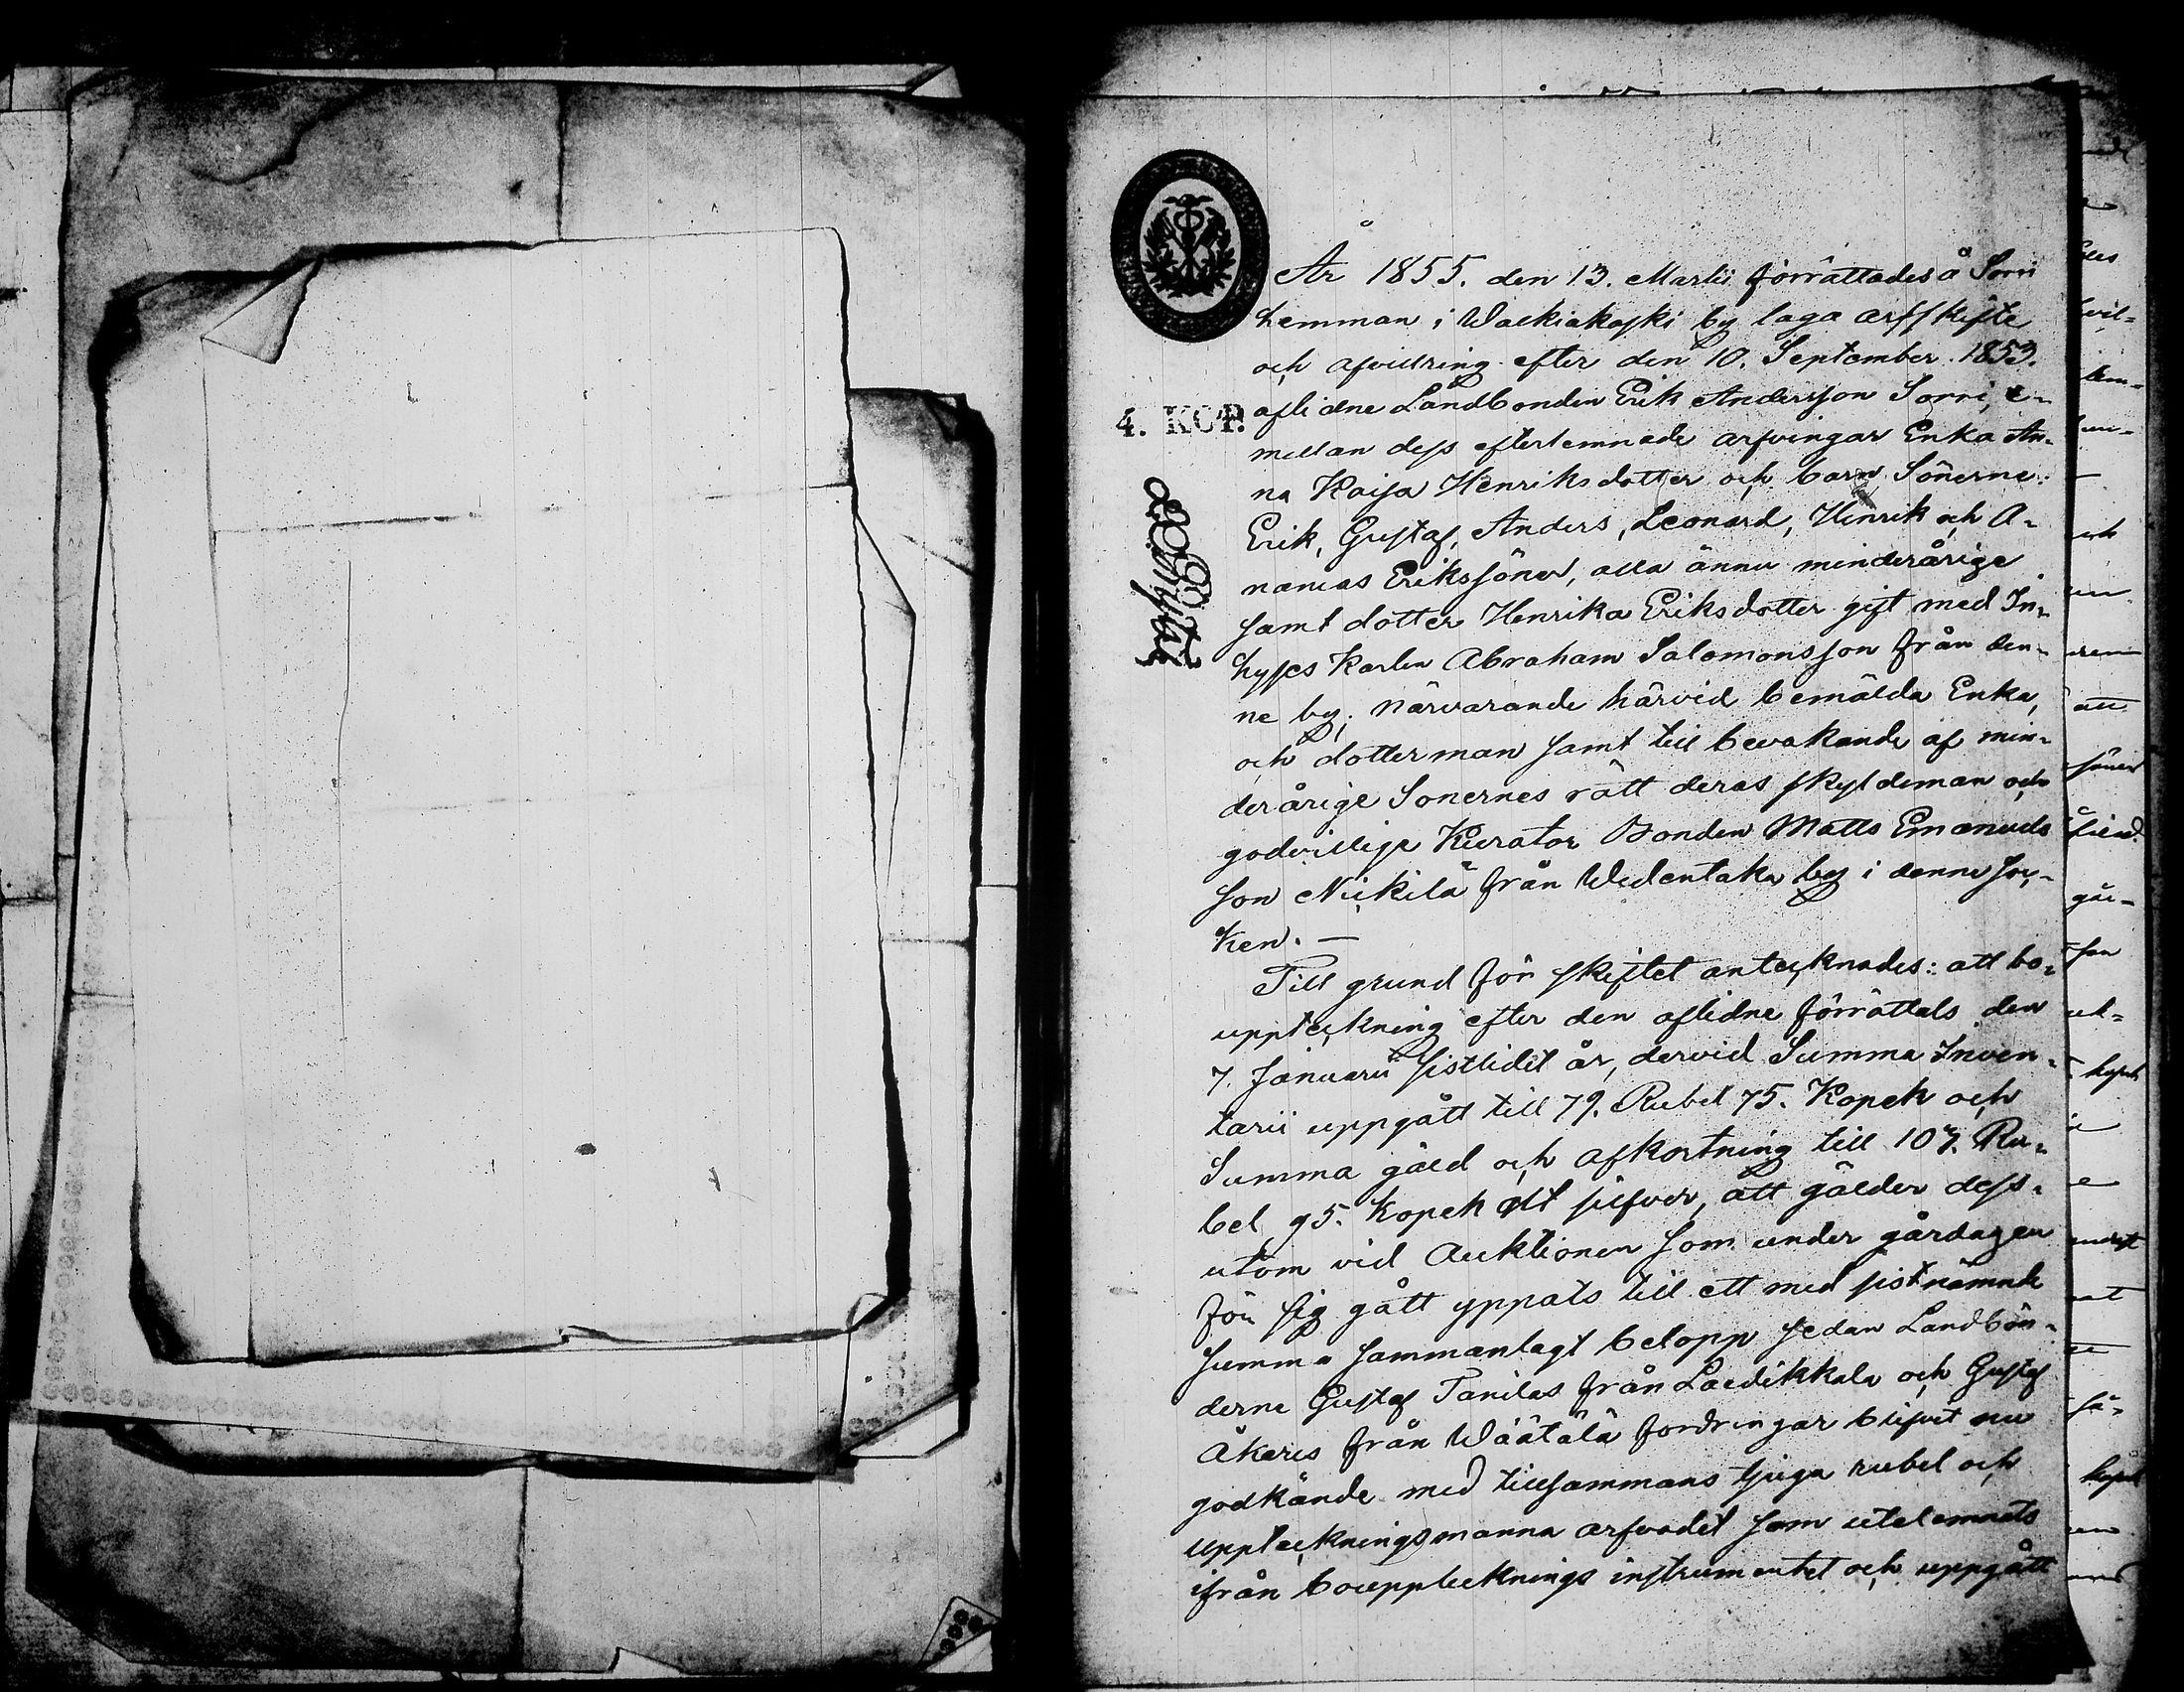 År 1855. den 13. Martii förrättades å Sorri
hemman i Walkiakoski by laga arfskifte
och afvittring efter den 10. September 1853.
4. KOP. aflidne Landbonden Erik Andersson Sorri, e-
mellan dess efterlemnade arfvingar Enka An-
na Kaisa Henriksdotter och barn Sönerne
Erik, Gustaf, Anders, Leonard, Henrik och A-
nanias Erikssöner, alla ännu minderårige
samt dotter Henrika Eriksdotter gift med In-
hyses Karlen Abraham Salomonsson från den-
ne by; närvarande härvid bemälda Enka,
och dotterman samt till bevakande af min-
derårige Sönernes rätt deras skyldeman och
godvillige Kurator Bonden Matts Emanuels
son Nickilä från Wedentaka by i denne soc-
ken. —
Till grund för skiftet antecknades: att bo-
uppteckning efter den aflidne förrättats den
7. Januarii sistlidit år, dervid Summa Inven-
tarii uppgått till 79. Rubel 75. Kopek och
Summa gäld och afkortning till 107. Ru-
bel 95. Kopek allt silfver, att gälder dess-
utom vid Auktionen som under gårdagen
för sig gått yppats till ett med sistnämnde
summa sammanlagt belopp sedan Landbön-
derne Gustaf Tanilas från Laedikkala och Gustaf
Åkeris från Wäätälä fordringar blifvit nu
godkände med tillsammans tjuga rubel och
uppteckningsmanna arfvodet som utelemnats
ifrån bouppteknings instrumentet och uppgått